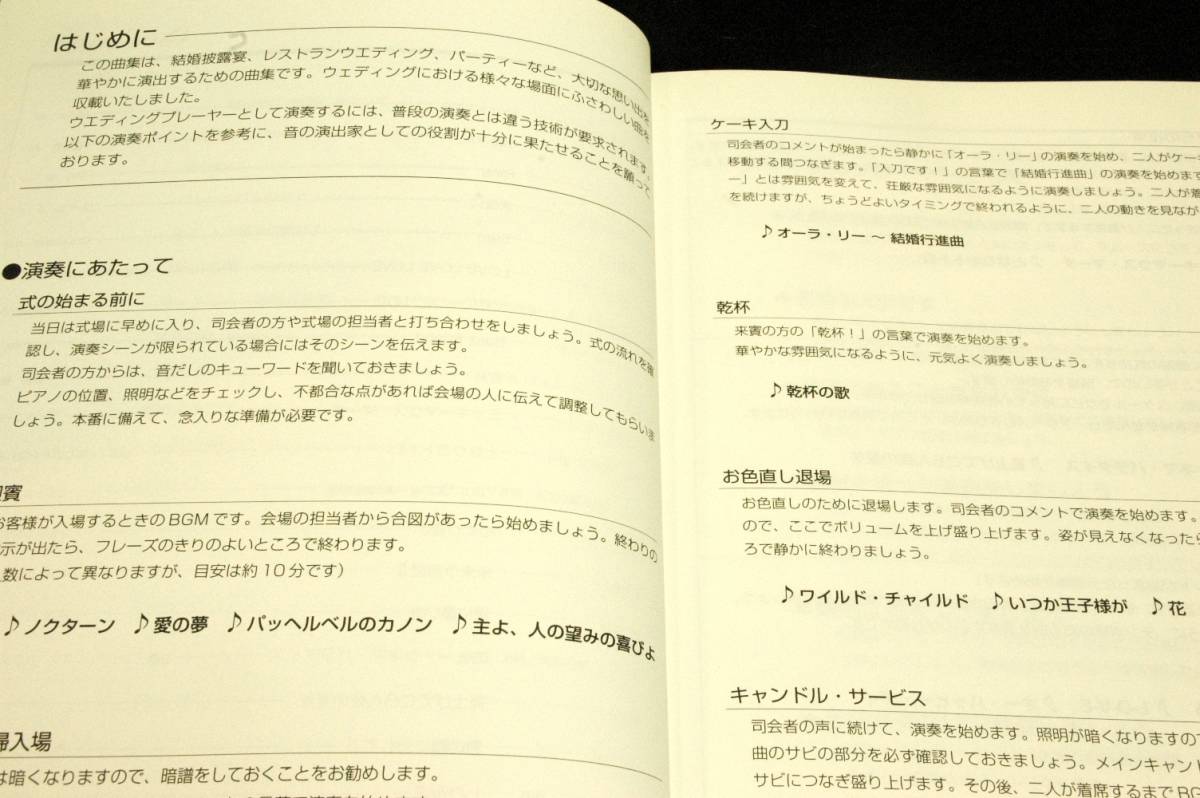 はじめに
この曲集は、結婚披露宴、レストランウエディング、パーティーなど、大切な思い出を
華やかに演出するための曲集です。ウェディングにおける様々な場面にふさわしい曲を
収載いたしました。
ウエディングプレーヤーとして演奏するには、普段の演奏とは違う技術が要求されます。
以下の演奏ポイントを参考に、音の演出家としての役割が十分に果たせることを願って
おります。
●演奏にあたって
式の始まる前に
当日は式場に早めに入り、司会者の方や式場の担当者と打ち合わせをしましょう。式の流れを確
認し、演奏シーンが限られている場合にはそのシーンを伝えます。
司会者の方からは、音だしのキューワードを聞いておきましょう。
ピアノの位置、照明などをチェックし、不都合な点があれば会場の人に伝えて調整してもらいま
しょう。本番に備えて、念入りな準備が必要です。
賓
お客様が入場するときのBGMです。会場の担当者から合図があったら始めましょう。終わりの
示が出たら、フレーズのきりのよいところで終わります。
数によって異なりますが、目安は約10分です）
♪ノクターン ♪愛の夢 ♪パッヘルベルのカノン ♪主よ、人の望みの喜びよ
婦入場
は暗くなりますので、暗譜をしておくことをお勧めします。
ケーキ入刀
司会者のコメントが始まったら静かに「オーラ・リー」の演奏を始め、二人がケー
移動する間つなぎます。「入刀です！」の言葉で「結婚行進曲」の演奏を始めます
ー」とは雰囲気を変えて、荘厳な雰囲気になるように演奏しましょう。二人が着
を続けますが、ちょうどよいタイミングで終われるように、二人の動きを見なが
♪オーラ・リー ～ 結婚行進曲
乾杯
来賓の方の「乾杯！」の言葉で演奏を始めます。
華やかな雰囲気になるように、元気よく演奏しましょう。
♪乾杯の歌
お色直し退場
お色直しのために退場します。司会者のコメントで演奏を始めます。
ので、ここでボリュームを上げ盛り上げます。姿が見えなくなったら
ろで静かに終わりましょう。
♪ワイルド・チャイルド ♪いつか王子様が ♪花
キャンドル・サービス
司会者の声に続けて、演奏を始めます。照明が暗くなりますので
曲のサビの部分を必ず確認しておきましょう。メインキャンド
サビにつなぎ盛り上げます。その後、二人が着席するまでBG